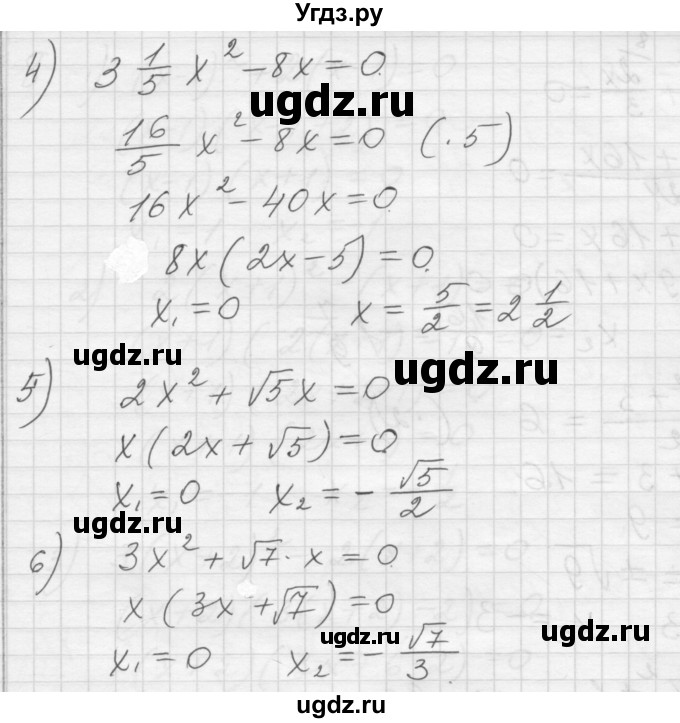 Угдз.ру
4) 3 1/5 x² - 8x = 0.
ugdz.ru
16/5 x² - 8x = 0 (· 5)
16x² - 40x = 0.
8x(2x - 5) = 0.
x₁ = 0 x = 5/2 = 2 1/2
ugdz.ru ugdz.ru
5) 2x² + √5x = 0
x(2x + √5) = 0.
x₁ = 0 x₂ = - √5/2
ugdz.ru
6) 3x² + √7 · x = 0.
x(3x + √7) = 0
ugdz.ru ugdz.ru
x₁ = 0 x₂ = - √7/3.
ugdz.ru
Угдз.ру